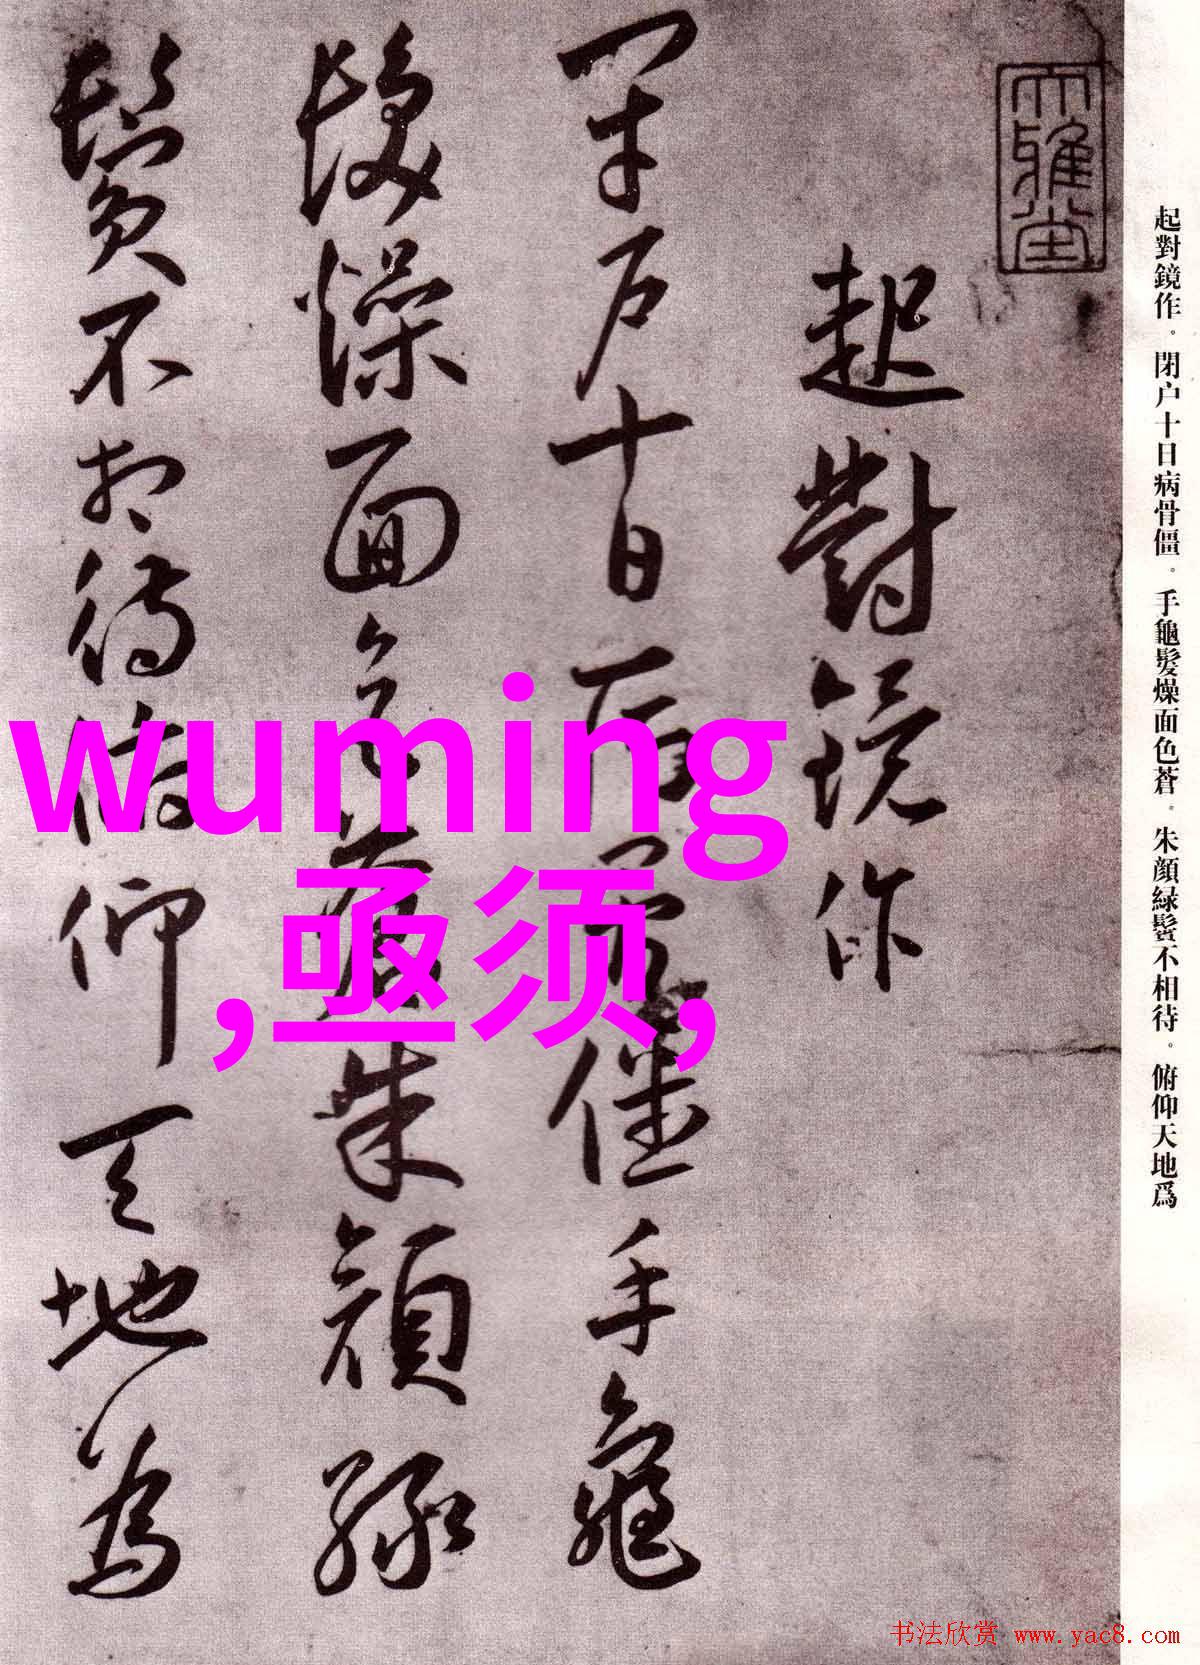 大雅堂
起對鏡作
閉户十日病骨僵手龜
髮燥面色蒼朱顔緑
鬢不相待俯仰天地爲
起對鏡作。閉户十日病骨僵。手龜髮燥面色蒼。朱顔緑鬢不相待。俯仰天地爲
wuming
,亟须,
书法欣赏 www.yac8.com